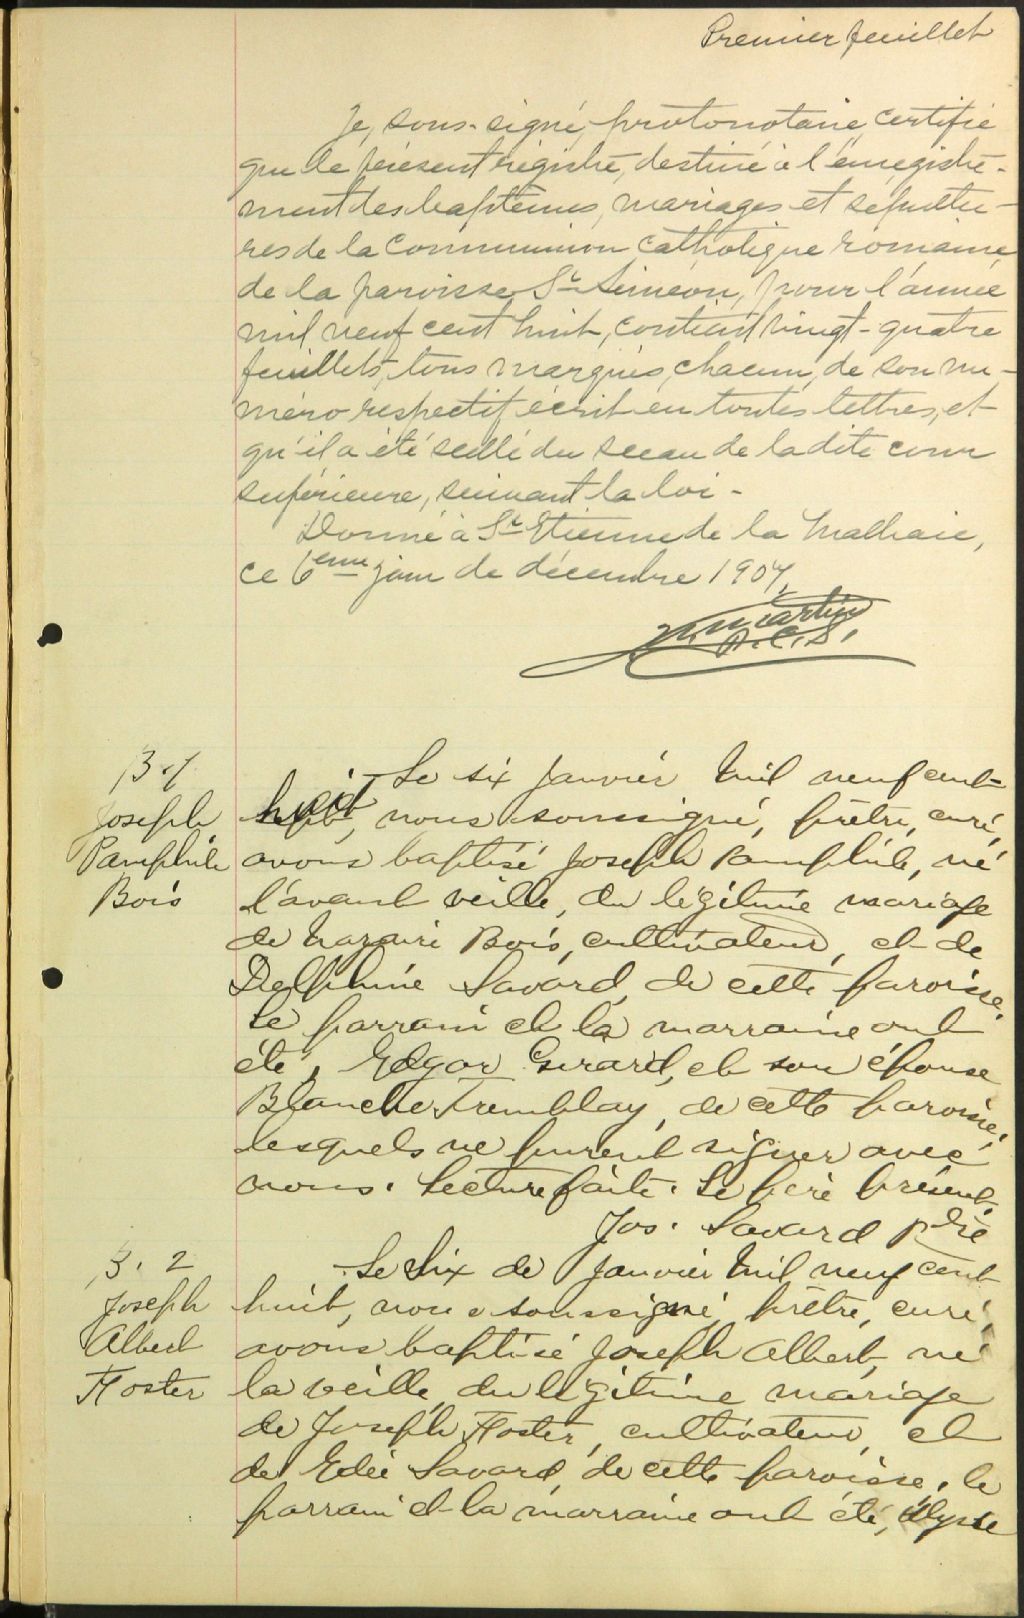 Premier feuillet
Je, sous-signé, protonotaire, certifie
que le présent régistre, destiné à l'enregistre-
ment des baptêmes, mariages et sépultu-
res de la Communion Catholique romaine
de la paroisse St Siméon, pour l'année
mil neuf cent huit, contient vingt-quatre
feuillets, tous marqués, chacun, de son nu-
méro respectif écrit en toutes lettres, et
qu'il a été scellé du sceau de la dite cour
supérieure, suivant la loi -
Donné à St Etienne de la Malbaie,
ce 6eme jour de décembre 1907.
Martin
P.C.S.
B. 1
Joseph
Pamphile
Bois
Le six Janvier Mil neuf cent-
huit, nous soussigné, prêtre, curé,
avons baptisé Joseph Pamphile, né
l'avant veille, du légitime mariage
de Nazaire Bois, cultivateur, et de
Delphine Savard, de cette paroisse.
Le parrain et la marraine ont
été, Edgar Girard, et son épouse
Blanche Tremblay, de cette paroisse,
lesquels ne purent signer avec
nous. Lecture faite. Le père présent.
Jos. Savard ptre
B. 2
Joseph
Albert
Foster
Le Six de Janvier Mil neuf cent
huit, nous soussigné, prêtre, curé,
avons baptisé Joseph Albert, né
la veille, du légitime mariage
de Joseph Foster, cultivateur, et
de Edée Savard, de cette paroisse. Le
parrain et la marraine ont été,